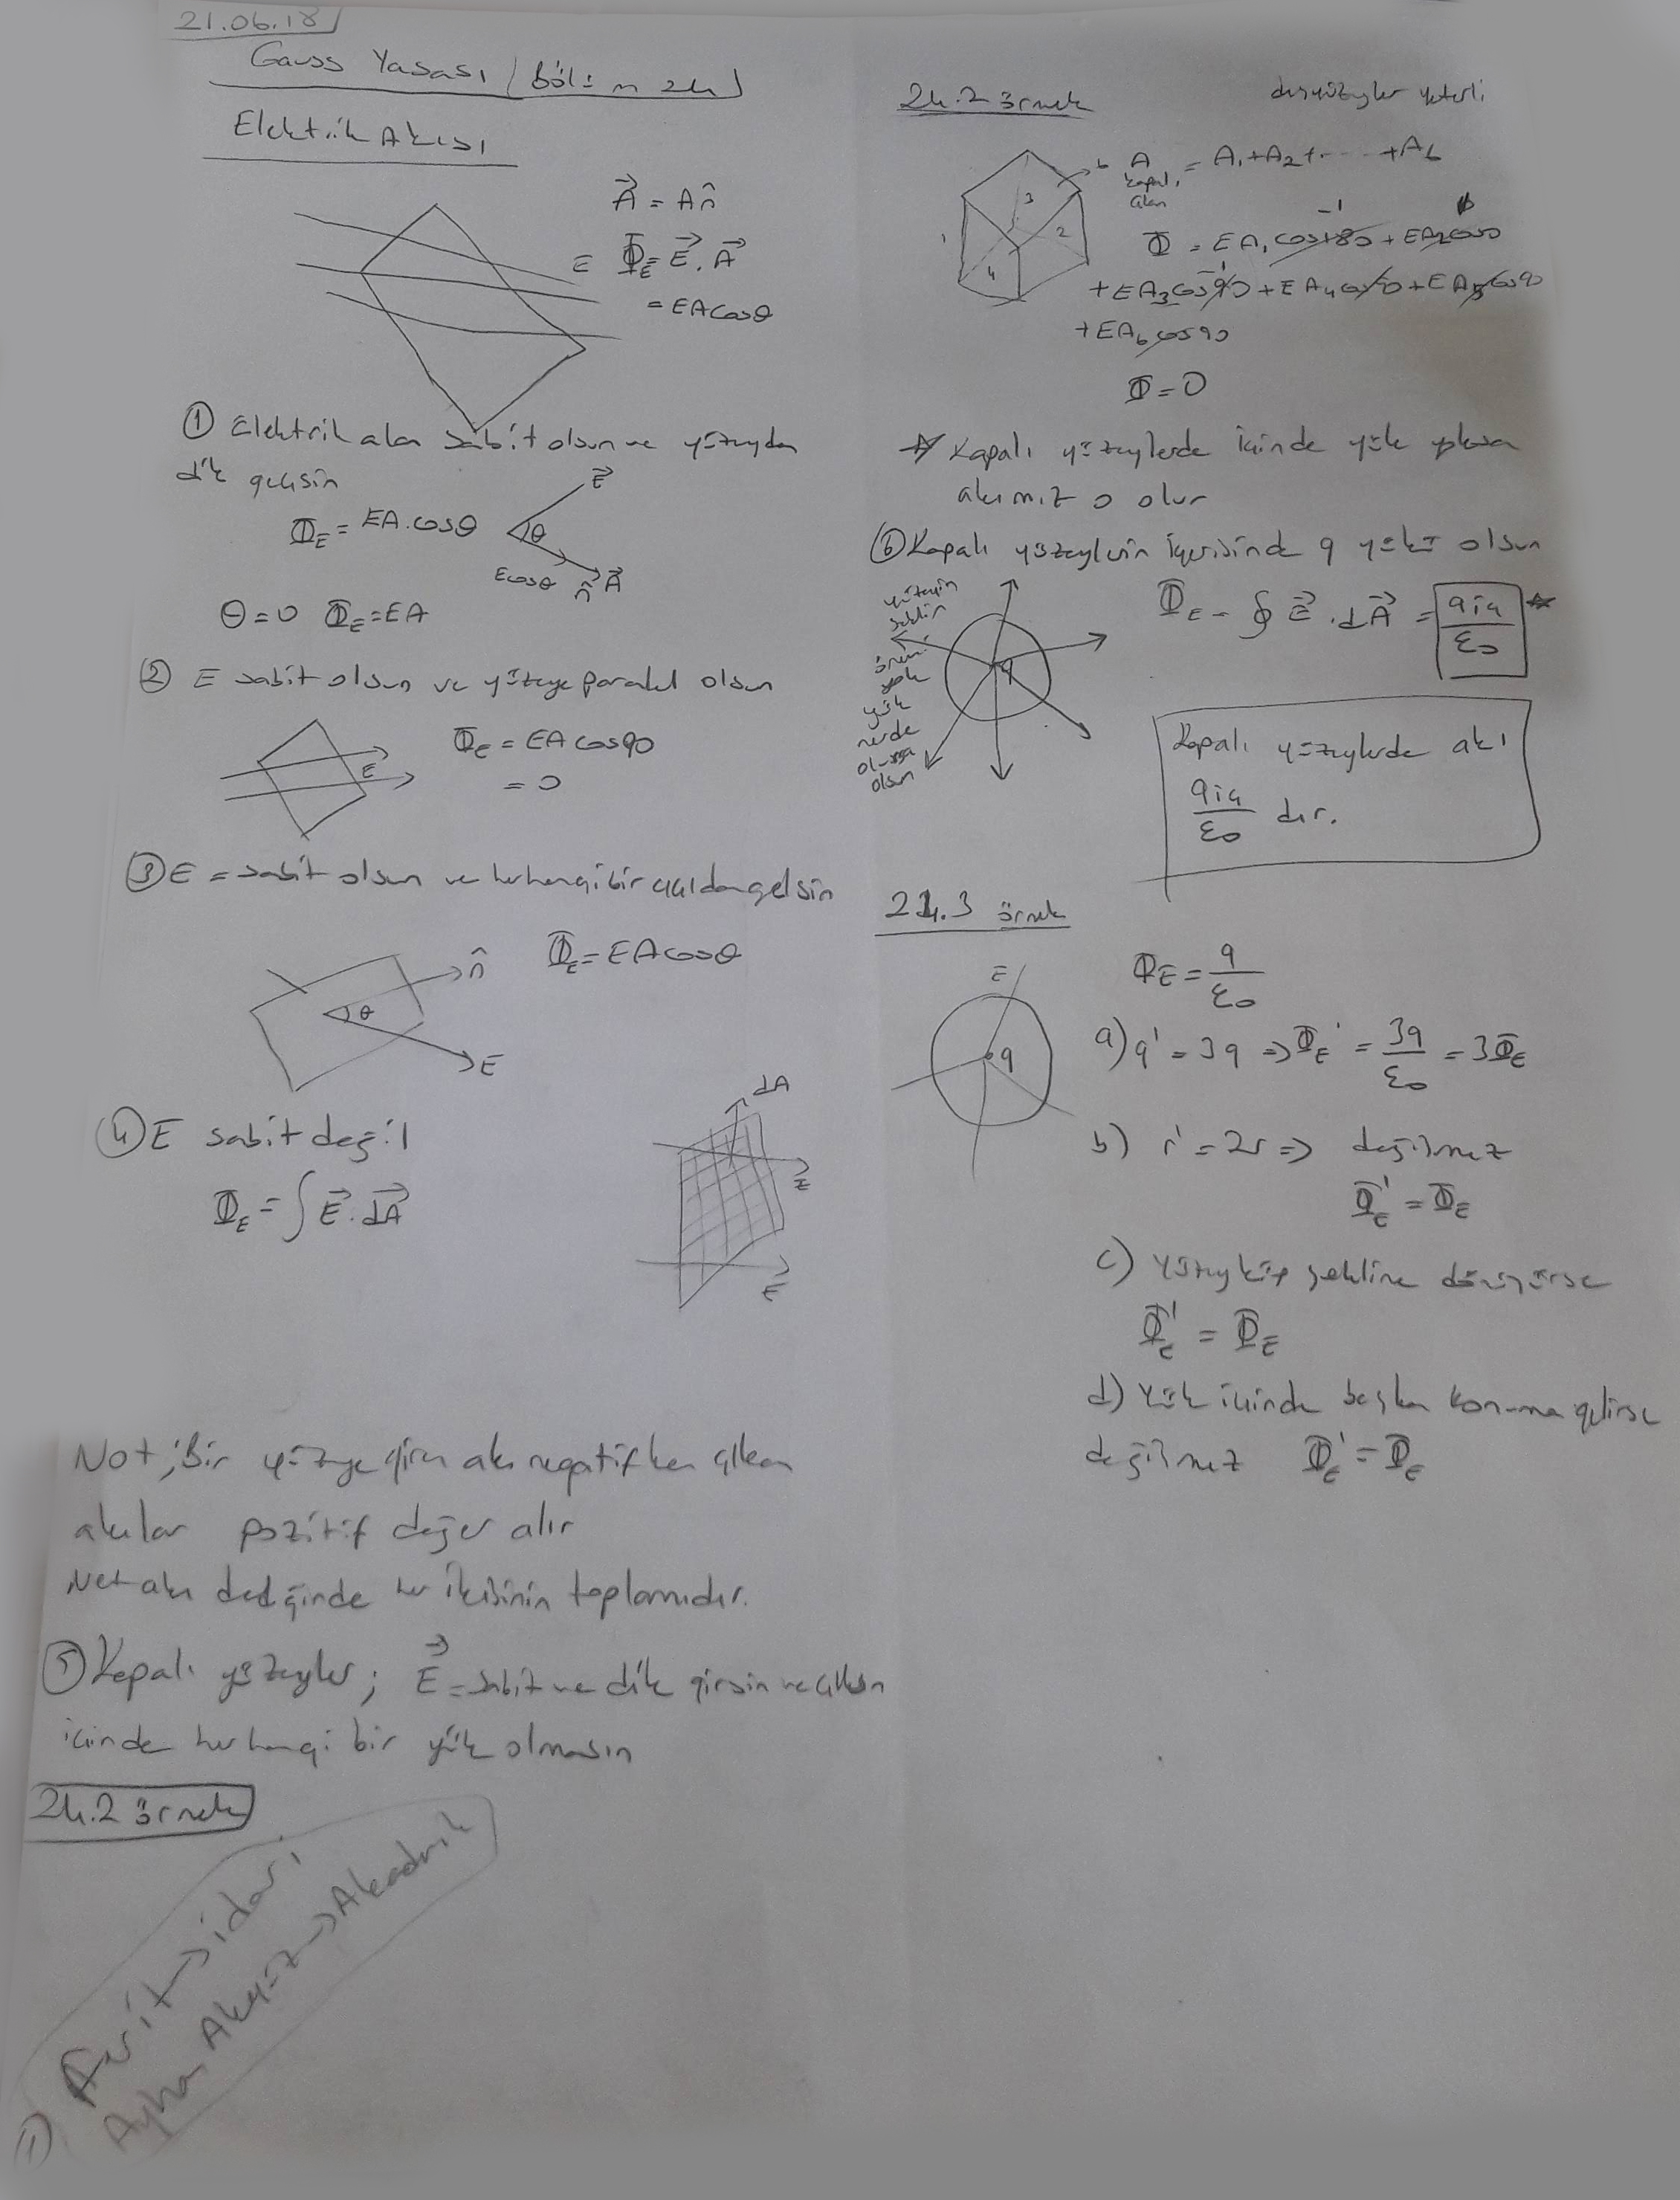 21.06.18
Gauss Yasası (Bölüm 24)
Elektrik Akısı
A⃗ = An̂
E Φ_E = E⃗ . A⃗
= EA cosθ
① Elektrik alan sabit olsun ve yüzeyden
dik geçsin
E⃗
Φ_E = EA.cosθ
θ
Ecosθ n̂ A⃗
θ=0 Φ_E = EA
② E sabit olsun ve yüzeye paralel olsun
Φ_E = EA cos90
E
= 0
③ E = sabit olsun ve herhangi bir açıdan gelsin
n̂ Φ_E = EA cosθ
θ
E
dA
④ E sabit değil
E
Φ_E = ∫ E⃗ . dA⃗
E
Not; Bir yüzeye giren akı negatifken çıkan
akılar pozitif değer alır
Net akı dediğinde her ikisinin toplamıdır.
⑤ Kapalı yüzeyler; E⃗ = sabit ve dik girsin ve çıksın
içinde herhangi bir yük olmasın
24.2 örnek
Ferit → idari
Ayhan Akyüz → Akademik
24.2 örnek
dış yüzeyler yeterli
6 A kapalı alan = A₁+A₂+.....+A₆
1 3 2 4
-1
Φ = EA₁ cos180 + EA₂cos0
+EA₃cos90 + EA₄cos90 + EA₅cos90
+EA₆cos90
Φ = 0
Kapalı yüzeylerde içinde yük yoksa
akımız 0 olur
⑥ Kapalı yüzeylerin içerisinde q yükü olsun
yüzeyin
şeklin
önemi
yok
yük
nerde
olursa
olsun
q
Φ_E = ∮ E⃗ . dA⃗ = qiç/ε₀
Kapalı yüzeylerde akı
qiç/ε₀ dır.
24.3 örnek
E
q
ΦE = q/ε₀
a) q' = 3q => Φ_E' = 3q/ε₀ = 3Φ_E
b) r' = 2r => değişmez
Φ_E' = Φ_E
c) Yüzey küp şekline dönüşürse
Φ_E' = Φ_E
d) Yük içinde başka konuma gelirse
değişmez Φ_E' = Φ_E